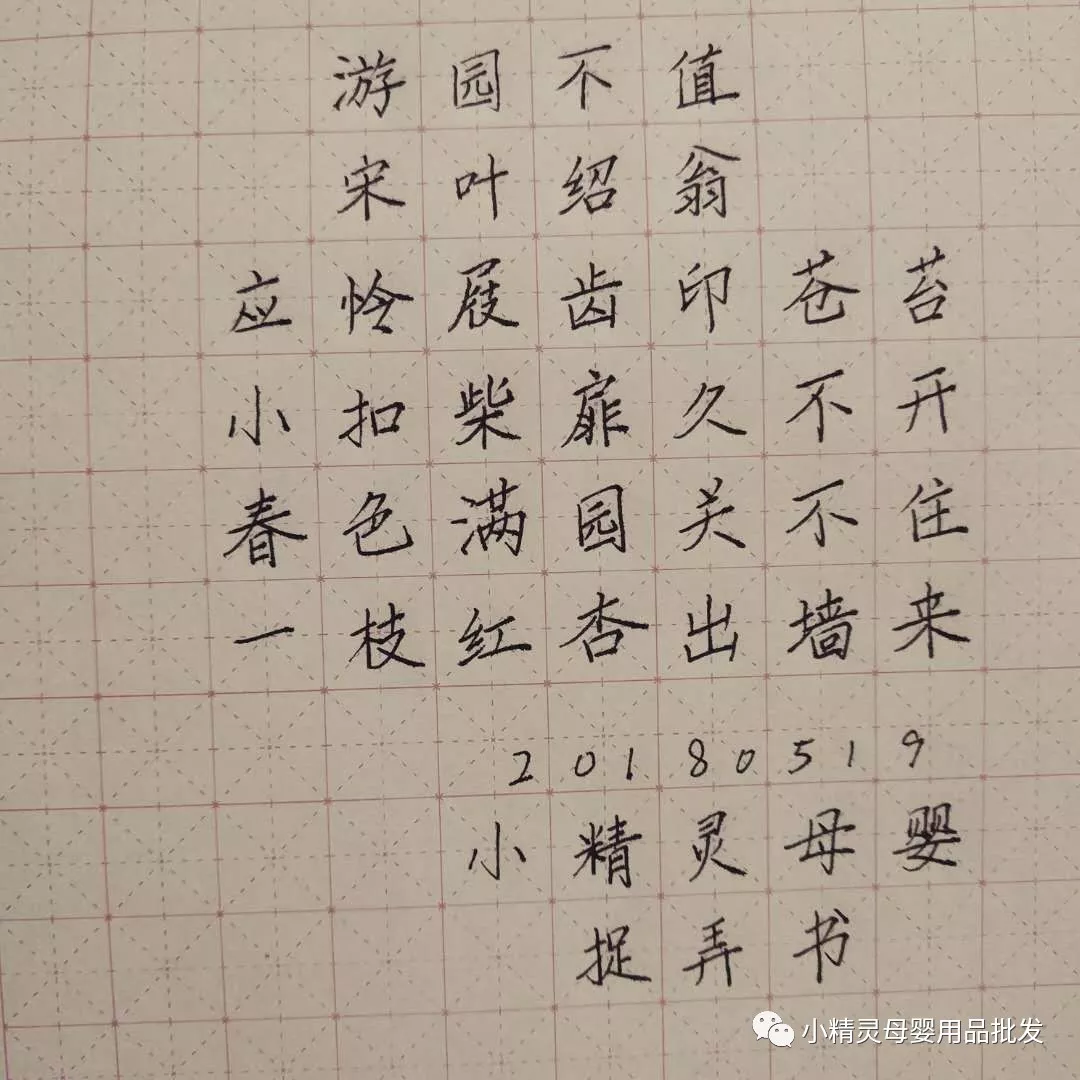 游园不值
宋叶绍翁
应怜屐齿印苍苔
小扣柴扉久不开
春色满园关不住
一枝红杏出墙来
20180519
小精灵母婴
捉弄书
小精灵母婴用品批发